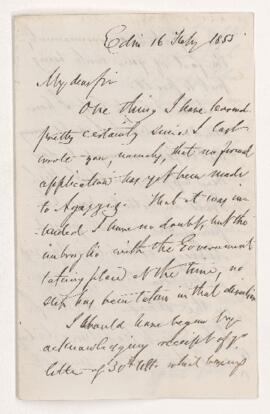 Edin 16 July 1855
My dear Sir
One thing I have learned
pretty certainly since I last
wrote you, namely, that no formal
application has yet been made
to Agassiz. That it was in-
tended I have no doubt, but the
imbroglio with the Government
taking place at the time, no
step has been taken in that direction
I should have begun by
acknowledging receipt of yr
letter of 30th ulto. which